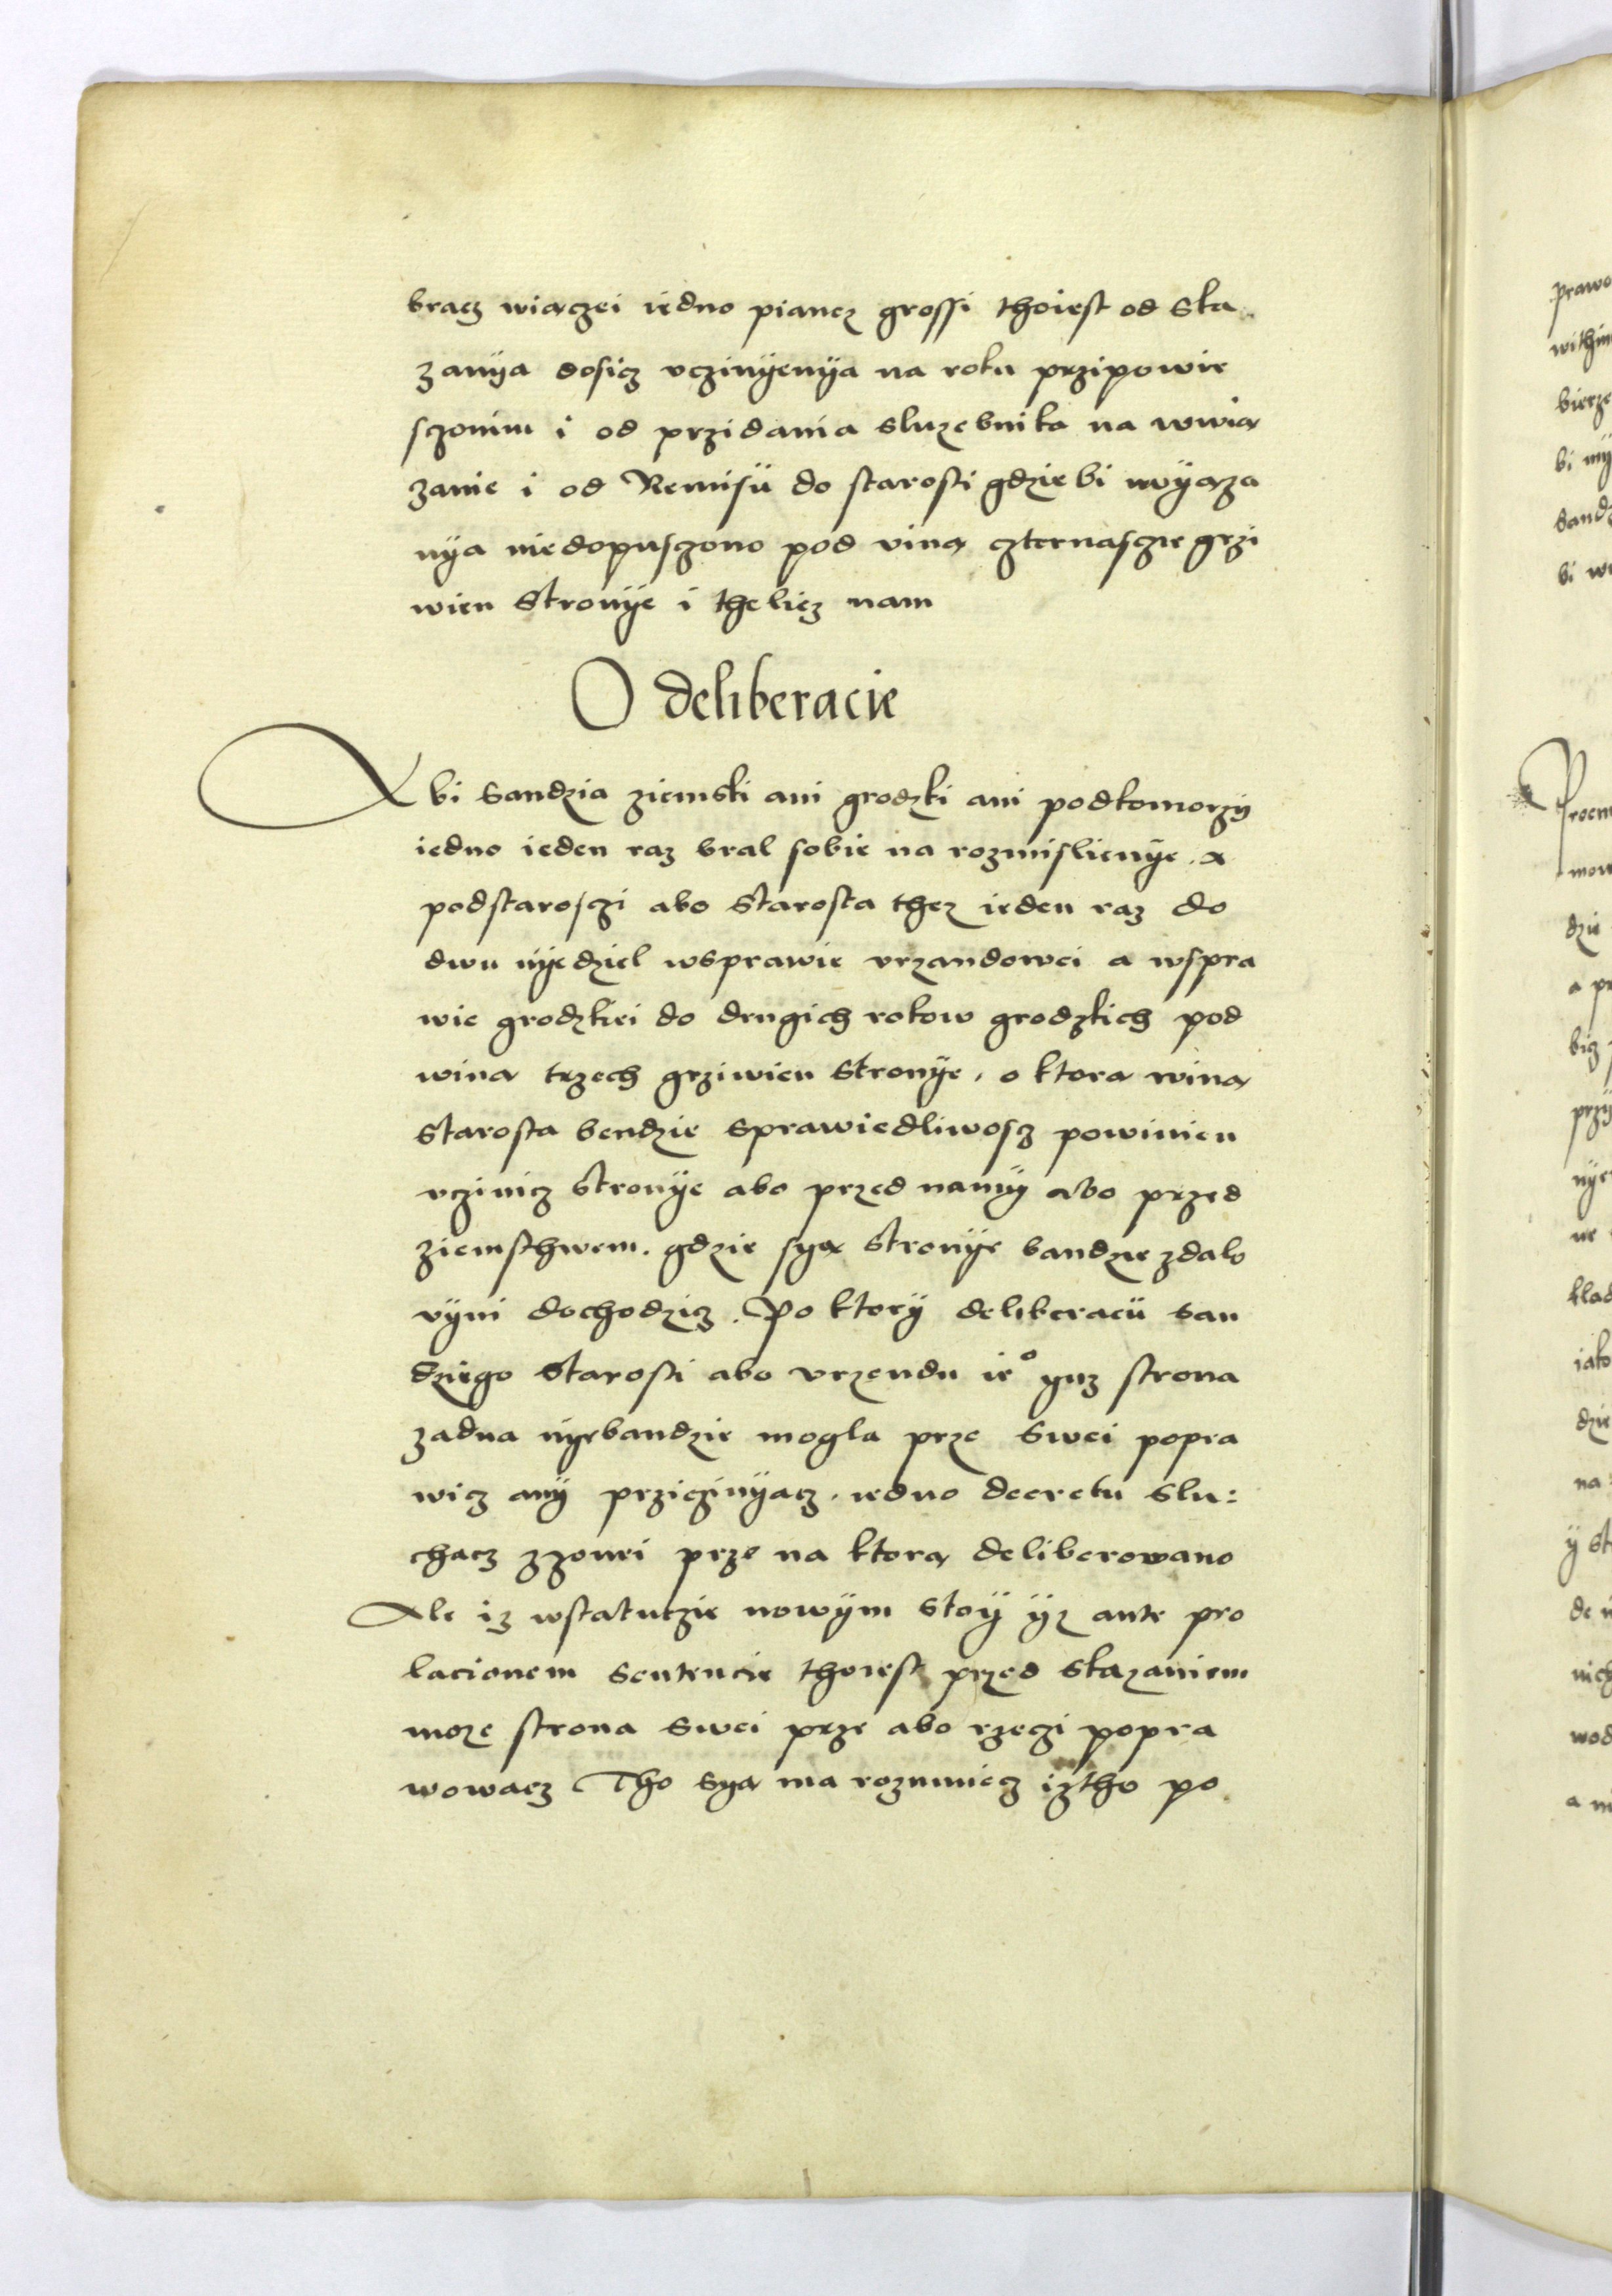 bracz wiaczei iedno piancz grossi thoiest od ska
zanÿa dosicz vczinÿenÿa na roku przipowie
sczonim i od przidania sluzebnika na wwia
zanie i od Remisii do starosti gdziebi wwÿąza
nÿa niedopusczono pod viną czternasczie grzi
wien stronÿe i theliez nam
O deliberacie
Abi sandzia ziemski ani grodzki ani podkomorzÿ
iedno ieden raz bral sobie na rozmislienÿe. a
podstarosczi abo starosta thez ieden raz do
dwu nÿedziel wsprawie vrzandowei a wspra
wie grodzkiei do drugich rokow grodzkich pod
winą trzech grziwien stronÿe, o ktorą winą
starosta bendzie sprawiedliwosz powinien
vczinicz stronÿe abo przed namÿ abo przed
ziemsthwem. gdzie sÿą stronÿe bandzie zdalo
vÿni dochodzicz. Po ktorÿ deliberacii san
dziego starosti abo vrzendu ie° ÿuz strona
zadna nÿebandzie mogla prze swei popra
wicz anÿ przicziniÿacz. iedno decretu slu:
chacz zzonei prze na ktorą deliberowano
Ale iz wstatuczie nowÿm stoÿ ÿz ante pro
lacionem sentencie thoiest przed skazaniem
moze strona swei prze abo rzeczi popra
wowacz Tho sÿą ma rozumiecz iztho po
prawo
within
bierze
bi
bi
dzie
a
bicz
ne
iako
dzie
na
a